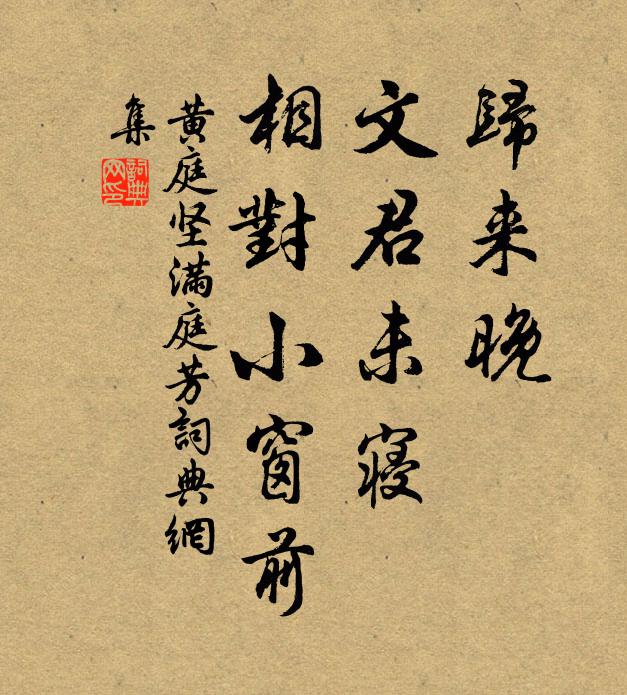 歸来晚
文君未寝
相對小窗前
黄庭坚滿庭芳詞典網
集
詞典
网印